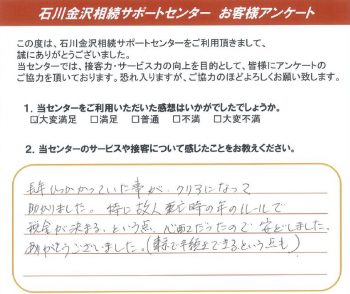 石川金沢相続サポートセンター お客様アンケート
この度は、石川金沢相続サポートセンターをご利用頂きまして、
誠にありがとうございました。
当センターでは、接客力・サービス力の向上を目的として、皆様にアンケートの
ご協力を頂いております。恐れ入りますが、ご協力のほどよろしくお願い致します。
1. 当センターをご利用いただいた感想はいかがでしたでしょうか。
☑大変満足 □満足 □普通 □不満 □大変不満
2. 当センターのサービスや接客について感じたことをお教えください。
長年ひっかかっていた事が、クリアになって
助かりました。特に故人死亡時の年のルールで
税金が決まる、という点、心配だったので安どしました。
ありがとうございました。(東京で手続きできる、という点も)